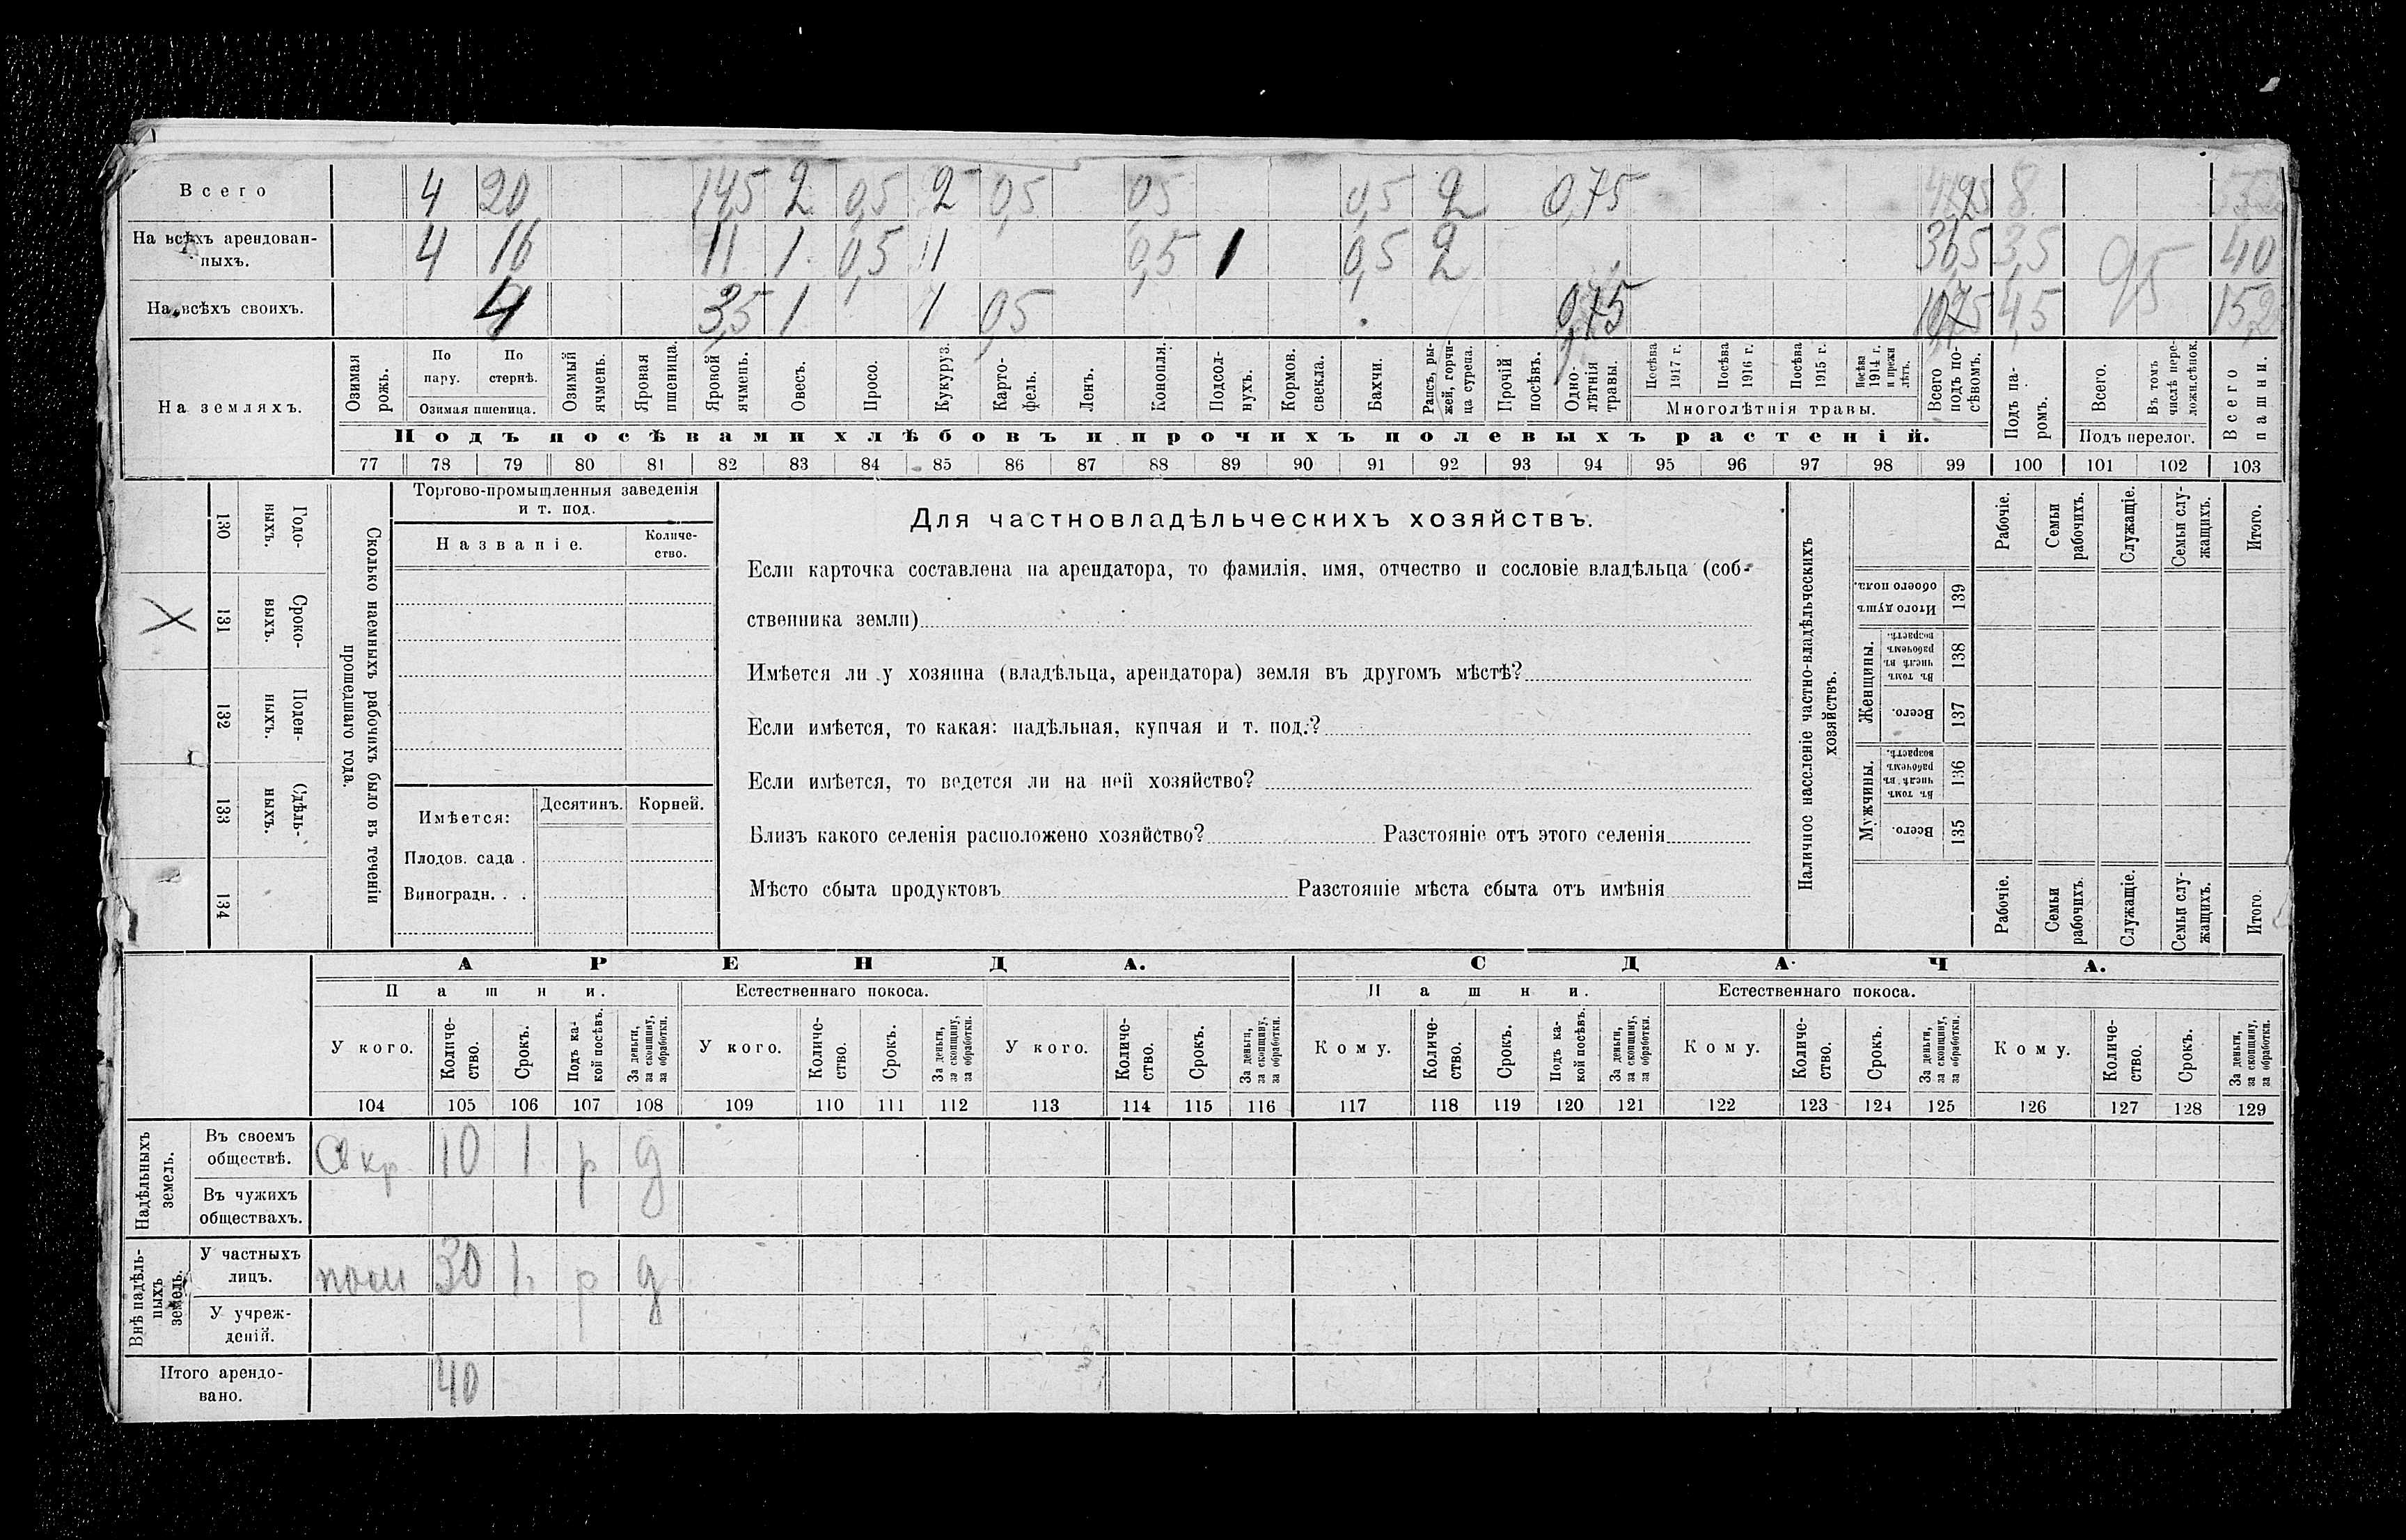 Всего 4 20 14,5 2 0,5 2 0,5 05 0,5 2 0,75 8
На всѣхъ арендован-
ныхъ. 4 16 11 1 0,5 1 0,5 1 0,5 2 36,5 3,5 95 40
На всѣхъ своихъ. 4 3,5 1 1 05 0,75 4,5 15,2
На земляхъ.
Озимая рожь.
По пару.
По стернѣ.
Озимая пшеница.
Озимый ячмень.
Яровая пшеница.
Яровой ячмень.
Овесъ.
Просо.
Кукуруз.
Карто-
фель.
Ленъ.
Конопля.
Подсол-
нухъ.
Кормов.
свекла.
Бахчи.
Рапсъ, ры-
жей, горчи-
ца сурепа.
Прочій посѣвъ.
Одно-
лѣтнія травы.
Посѣва 1917 г.
Посѣва 1916 г.
Посѣва 1915 г.
Посѣва 1914 г. и прежн лѣтъ.
Многолѣтнія травы.
Всего подъ по-
сѣвомъ.
Подъ па-
ромъ.
Всего.
Въ томъ числѣ пере-
ложн.сѣнок.
Подъ перелог.
Всего пашни.
Подъ посѣвами хлѣбовъ и прочихъ полевыхъ растеній.
77 78 79 80 81 82 83 84 85 86 87 88 89 90 91 92 93 94 95 96 97 98 99 100 101 102 103
130 Годо-
выхъ.
131 Сроко-
выхъ.
132 Поден-
ныхъ.
133 Сдѣль-
ныхъ.
134
Сколько наемныхъ рабочихъ было въ теченіи
прошедшаго года.
Торгово-промышленныя заведенія
и т. под.
Названіе.
Количе-
ство.
Имѣется:
Десятинъ.
Корней.
Плодов. сада .
Виноградн. . .
Для частновладѣльческихъ хозяйствъ.
Если карточка составлена на арендатора, то фамилія, имя, отчество и сословіе владѣльца (соб-
ственника земли)
Имѣется ли у хозяина (владѣльца, арендатора) земля въ другомъ мѣстѣ?
Если имѣется, то какая: надѣльная, купчая и т. под.?
Если имѣется, то ведется ли на ней хозяйство?
Близъ какого селенія расположено хозяйство? Разстояніе отъ этого селенія
Мѣсто сбыта продуктовъ Разстояніе мѣста сбыта отъ имѣнія
Наличное населеніе частно-владѣльческихъ
хозяйствъ.
Рабочіе.
Семьи рабочихъ.
Служащіе.
Семьи слу-
жащихъ.
Итого.
Итого душъ обоего пола. 139
Женщины.
Въ томъ числѣ въ рабочемъ возрастѣ. 138
Всего. 137
Мужчины.
Въ томъ числѣ въ рабочемъ возрастѣ. 136
Всего. 135
Рабочіе.
Семьи рабочихъ.
Служащіе.
Семьи слу-
жащихъ.
Итого
АРЕНДА. СДАЧА.
Пашни. Естественнаго покоса. Пашни. Естественнаго покоса.
У кого.
Количе-
ство.
Срокъ.
Подъ ка-
кой посѣвъ.
За деньги, за скопщину, за обработки.
У кого.
Количе-
ство.
Срокъ.
За деньги, за скопщину, за обработки.
У кого.
Количе-
ство.
Срокъ.
За деньги, за скопщину, за обработки.
Кому.
Количе-
ство.
Срокъ.
Подъ ка-
кой посѣвъ.
За деньги, за скопщину, за обработки.
Кому.
Количе-
ство.
Срокъ.
За деньги, за скопщину, за обработки.
Кому.
Количе-
ство.
Срокъ.
За деньги, за скопщину, за обработки.
104 105 106 107 108 109 110 111 112 113 114 115 116 117 118 119 120 121 122 123 124 125 126 127 128 129
Надѣльныхъ земель.
Въ своемъ
обществѣ. кр 10 1 р д
Въ чужихъ
обществахъ.
Внѣ надѣль-
ныхъ земель.
У частныхъ
лицъ. пом 30 1 р д
У учреж-
деній.
Итого арендо-
вано. 40